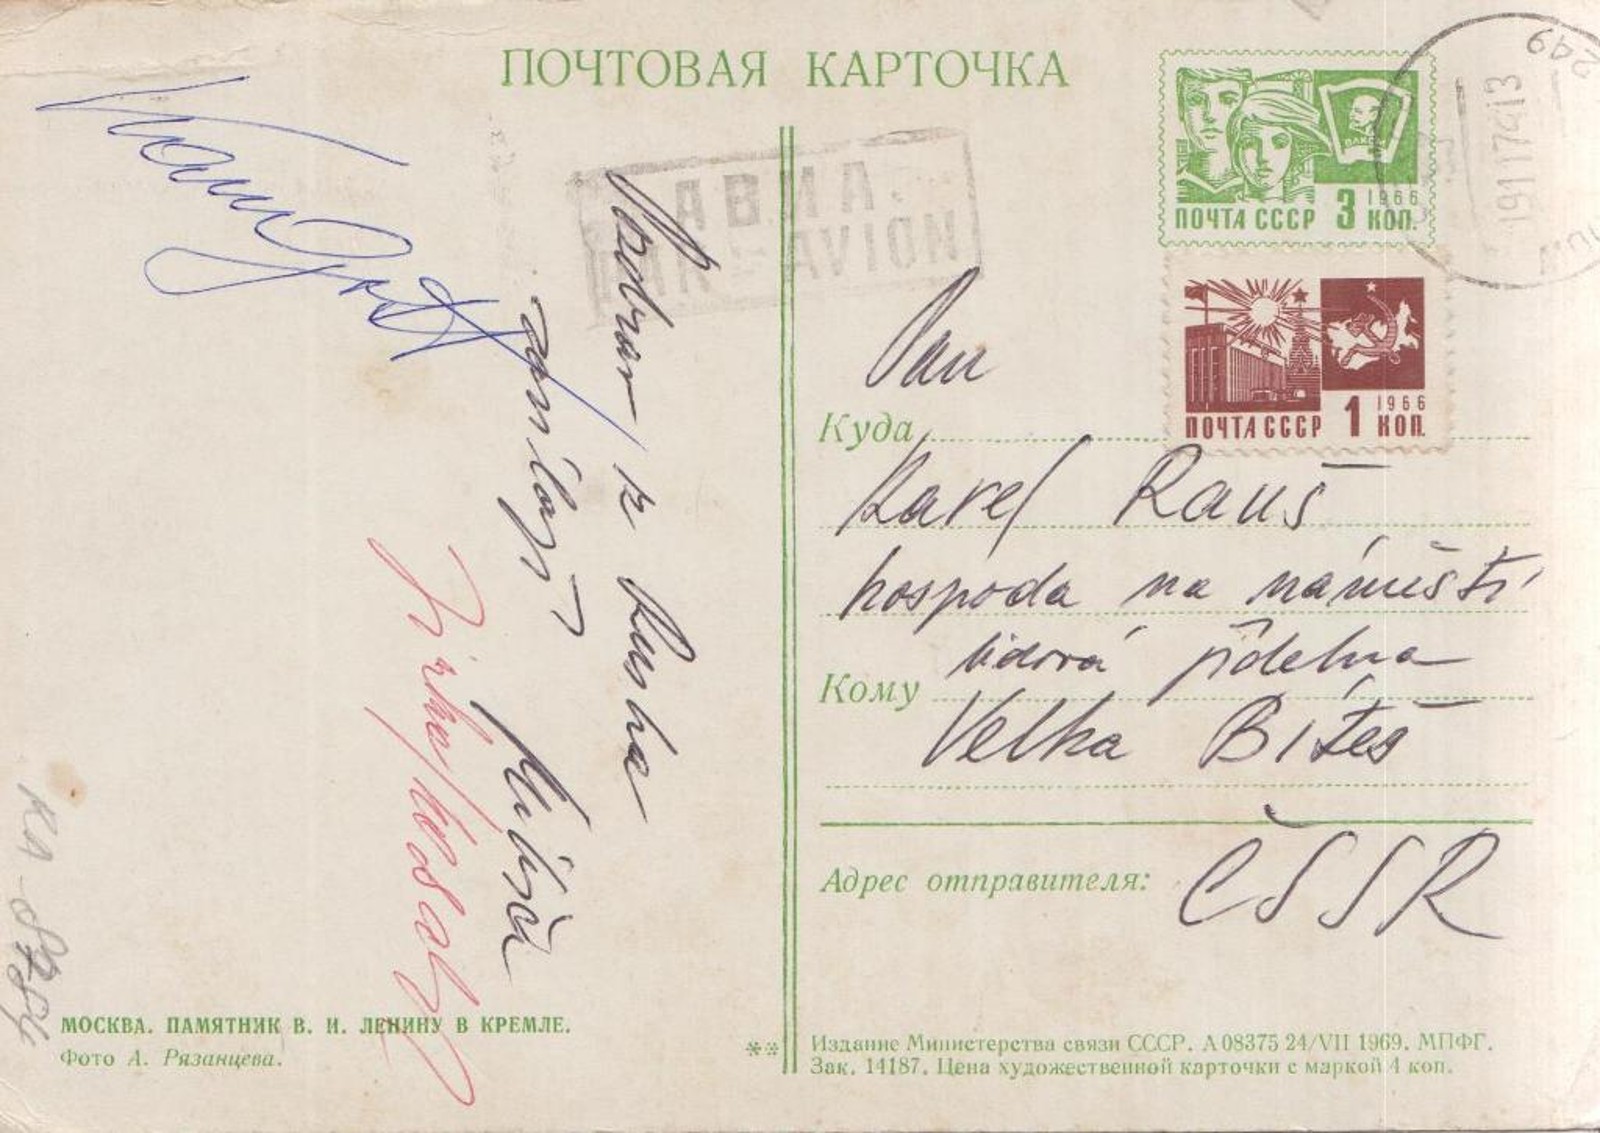 ПОЧТОВАЯ КАРТОЧКА
ВЛКСМ
1966
ПОЧТА СССР 3 КОП.
249
191174 13
АВИА.
PAR AVION
1966
ПОЧТА СССР 1 КОП.
Pozdrav z Ruska
zasílají
Jirka
Pan
Куда
Karel Rauš
hospoda na náměstí
lidová jídelna
Кому
Velká Bíteš
ČSSR
Адрес отправителя:
МОСКВА. ПАМЯТНИК В. И. ЛЕНИНУ В КРЕМЛЕ.
Фото А. Рязанцева.
Издание Министерства связи СССР. А 08375 24/VII 1969. МПФГ.
Зак. 14187. Цена художественной карточки с маркой 4 коп.